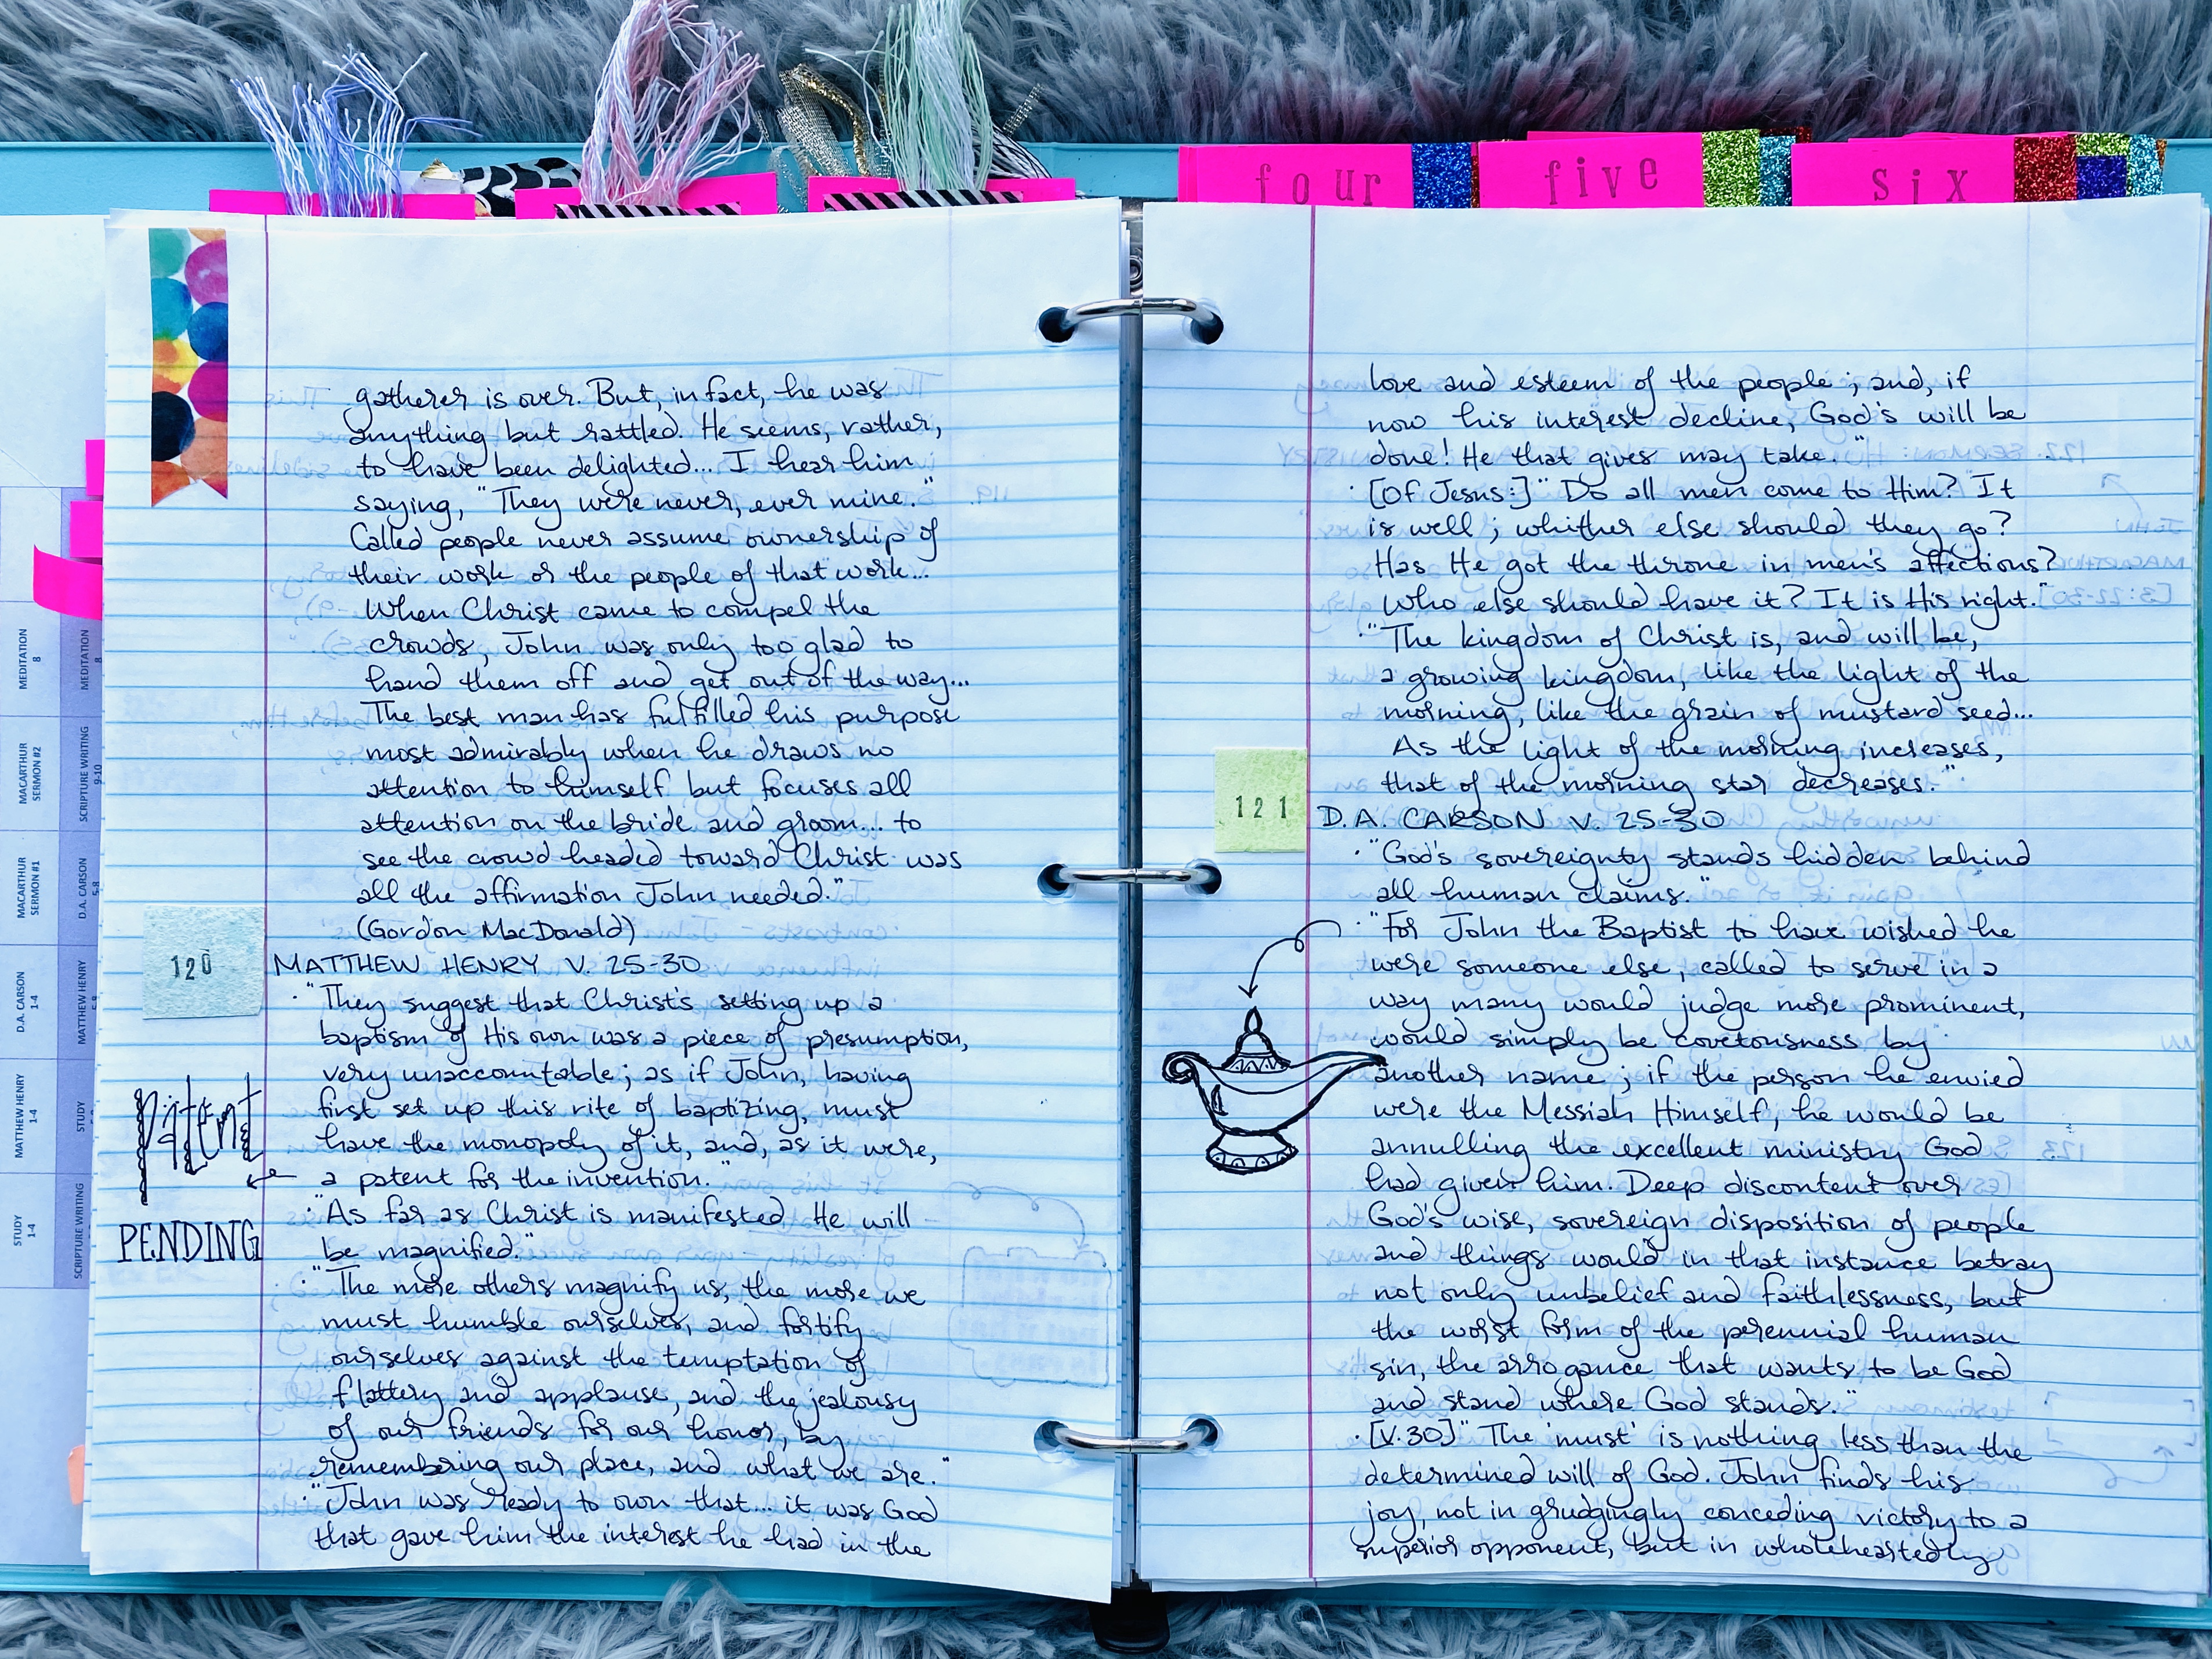 four
five
six
gatherer is over. But, in fact, he was
anything but rattled. He seems, rather,
to have been delighted... I hear him
saying, "They were never, ever mine."
Called people never assume ownership of
their work or the people of that work...
When Christ came to compel the
crowds, John was only too glad to
hand them off and get out of the way...
The best man has fulfilled his purpose
most admirably when he draws no
attention to himself but focuses all
attention on the bride and groom... to
see the crowd headed toward Christ was
all the affirmation John needed."
(Gordon MacDonald)
120
MATTHEW HENRY V. 25-30
· "They suggest that Christ's setting up a
baptism of His own was a piece of presumption,
very unaccountable; as if John, having
first set up this rite of baptizing, must
have the monopoly of it, and, as it were,
a patent for the invention."
patent
PENDING
· "As far as Christ is manifested He will
be magnified."
· "The more others magnify us, the more we
must humble ourselves, and fortify
ourselves against the temptation of
flattery and applause, and the jealousy
of our friends for our honor, by
remembering our place, and what we are."
· "John was ready to own that... it was God
that gave him the interest he had in the
love and esteem of the people; and, if
now his interest decline, God's will be
done! He that gives may take."
· [Of Jesus:] "Do all men come to Him? It
is well; whither else should they go?
Has He got the throne in men's affections?
Who else should have it? It is His right."
· "The kingdom of Christ is, and will be,
a growing kingdom, like the light of the
morning, like the grain of mustard seed...
As the light of the morning increases,
that of the morning star decreases."
121
D.A. CARSON V. 25-30
· "God's sovereignty stands hidden behind
all human claims."
· "For John the Baptist to have wished he
were someone else, called to serve in a
way many would judge more prominent,
would simply be covetousness by
another name; if the person he envied
were the Messiah Himself, he would be
annulling the excellent ministry God
had given him. Deep discontent over
God's wise, sovereign disposition of people
and things would in that instance betray
not only unbelief and faithlessness, but
the worst form of the perennial human
sin, the arrogance that wants to be God
and stand where God stands."
· [V.30] "The 'must' is nothing less than the
determined will of God. John finds his
joy, not in grudgingly conceding victory to a
superior opponent, but in wholeheartedly
MEDITATION
8
MACARTHUR
SERMON #2
MACARTHUR
SERMON #1
D.A. CARSON
1-4
MATTHEW HENRY
1-4
STUDY
1-4
MEDITATION
8
SCRIPTURE WRITING
9-10
D.A. CARSON
5-8
MATTHEW HENRY
5-8
STUDY
SCRIPTURE WRITING